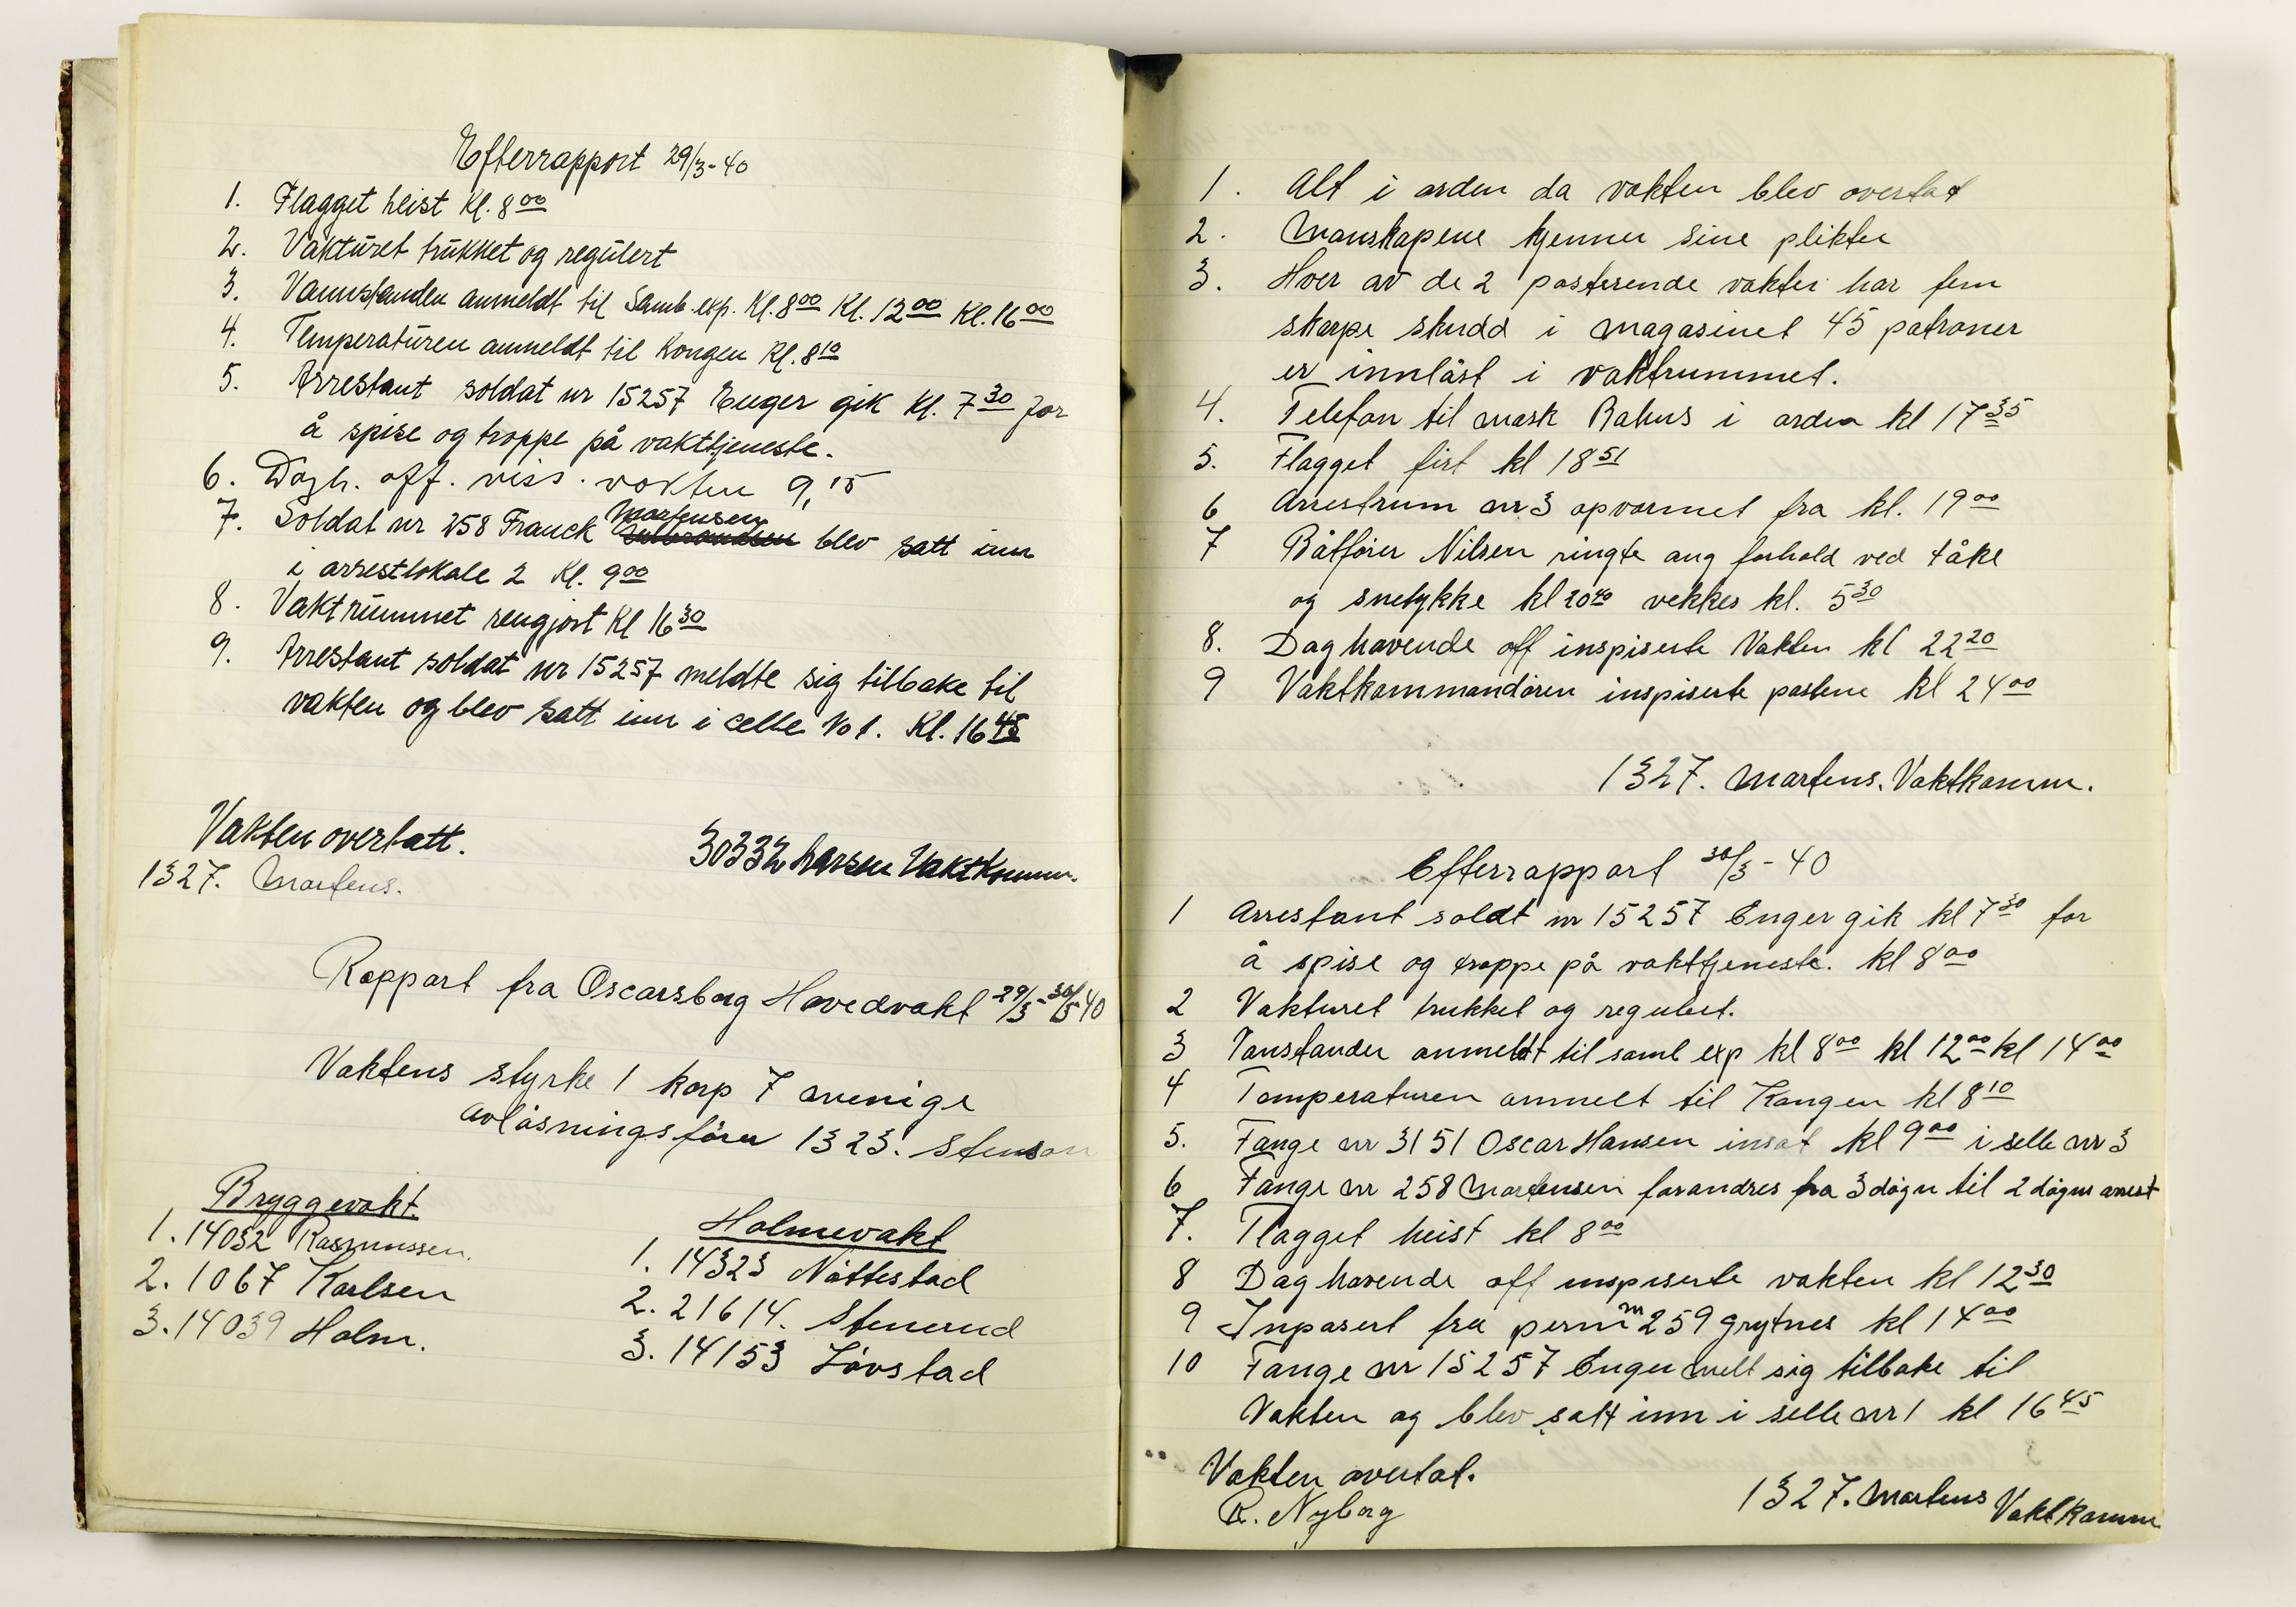 Efterrapport 29/3-40
1. Flagget heist Kl. 8 00
2. Vakturet trukket og regulert
3. Vannstanden anmeldt til Samb. exp. Kl. 8 00 Kl. 12 00 Kl. 16 00
4. Temperaturen anmeldt til Kongen Kl. 8 10
5. Arrestant soldat nr 15257 Enger gik Kl. 7 30 for
å spise og troppe på vakttjeneste.
6. Dagh. off. viss. vakten 9,15
7. Soldat nr 258 Franck Martensen blev satt inn
i arrestlokale 2 Kl. 9 00
8. Vaktrummet rengjort Kl 16 30
9. Arrestant soldat nr 15257 meldte sig tilbake til
vakten og blev satt inn i celle No 1. Kl. 16 45
Vakten overtatt.
1327. Martens.
30332 Larsen Vaktkomm.
Rapport fra Oscarsborg Hovedvakt 29/3-30/3 40
Vaktens styrke 1 korp 7 menige
Avløsningsfører 1323. Stenson
Bryggevakt.
1. 14032 Rasmussen.
2. 1067 Karlsen
3. 14039 Holm.
Holmevakt
1. 14323 Nøttestad
2. 21614. Stenerud
3. 14153 Løvstad
1. Alt i orden da vakten blev overtat
2. Manskapene kjenner sine plikter
3. Hver av de 2 posterende vakter har fem
skarpe skudd i magasinet 45 patroner
er innlåst i vaktrummet.
4. Telefon til mask Rahus i orden kl 17 35
5. Flagget firt kl 18 51
6 Arrestrum nr 3 opvarmet fra kl. 19 00
7 Båtfører Nilsen ringte ang forhold ved tåke
og snetykke kl 20 40 vekkes kl. 5 30
8. Daghavende off inspiserte Vakten kl 22 20
9 Vaktkommandøren inspiserte postene kl 24 00
1327. Martens. Vaktkomm.
Efterrapport 30/3-40
1 Arrestant soldt nr 15257 Enger gik kl 7 30 for
å spise og troppe på vakttjeneste. kl 8 00
2 Vakturet trukket og regulert.
3 Vanstanden anmeldt til samb exp kl 8 00 kl 12 00 kl 14 00
4 Temperaturen anmelt til Kongen kl 8 10
5. Fange nr 3151 Oscar Hansen insat kl 9 00 i selle nr 3
6 Fange nr 258 Martensen forandres fra 3 døgn til 2 døgns arrest
7. Flagget heist kl 8 00
8 Daghavende off inspiserte vakten kl 12 30
9 Inpasert fra perm nr 259 Grytnes kl 14 00
10 Fange nr 15257 Enger melt sig tilbake til
Vakten og blev satt inn i selle nr 1 kl 16 45
Vakten overtat.
R. Nyborg
1327. Martens Vaktkomm